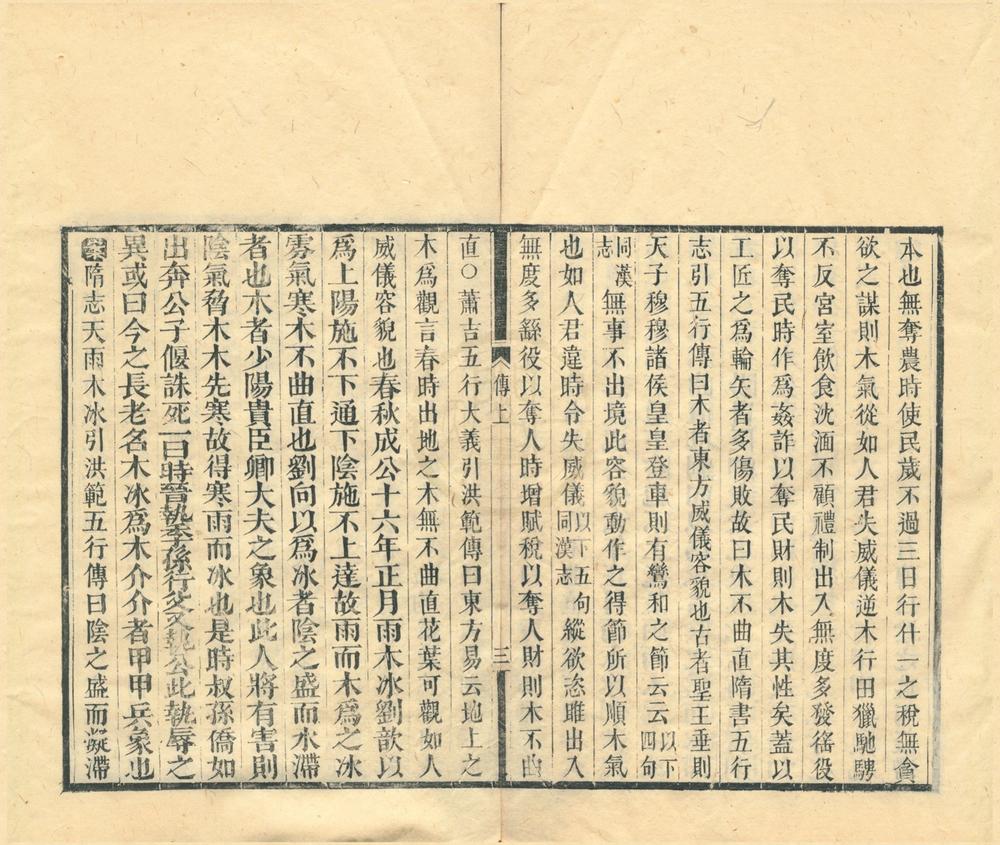 本也無奪農時使民歲不過三日行什一之稅無貪
欲之謀則木氣從如人君失威儀逆木行田獵馳騁
不反宮室飲食沈湎不顧禮制出入無度多發徭役
以奪民時作為姦詐以奪民財則木失其性矣蓋以
工匠之為輪矢者多傷敗故曰木不曲直隋書五行
志引五行傳曰木者東方威儀容貌也古者聖王垂則
天子穆穆諸侯皇皇登車則有鸞和之節云云以下四句
同漢志無事不出境此容貌動作之得節所以順木氣
也如人君違時令失威儀以下五句同漢志縱欲恣雎出入
無度多繇役以奪人時增賦稅以奪人財則木不曲
傳上
三
直〇蕭吉五行大義引洪範傳曰東方易云地上之
木為觀言春時出地之木無不曲直花葉可觀如人
威儀容貌也春秋成公十六年正月雨木冰劉歆以
為上陽施不下通下陰施不上達故雨而木為之冰
雰氣寒木不曲直也劉向以為冰者陰之盛而水滯
者也木者少陽貴臣卿大夫之象也此人將有害則
陰氣脅木木先寒故得寒雨而冰也是時叔孫僑如
出奔公子偃誅死一曰時晉執季孫行父又執公此執辱之
異或曰今之長老名木冰為木介介者甲甲兵象也
隋志天雨木冰引洪範五行傳曰陰之盛而凝滯